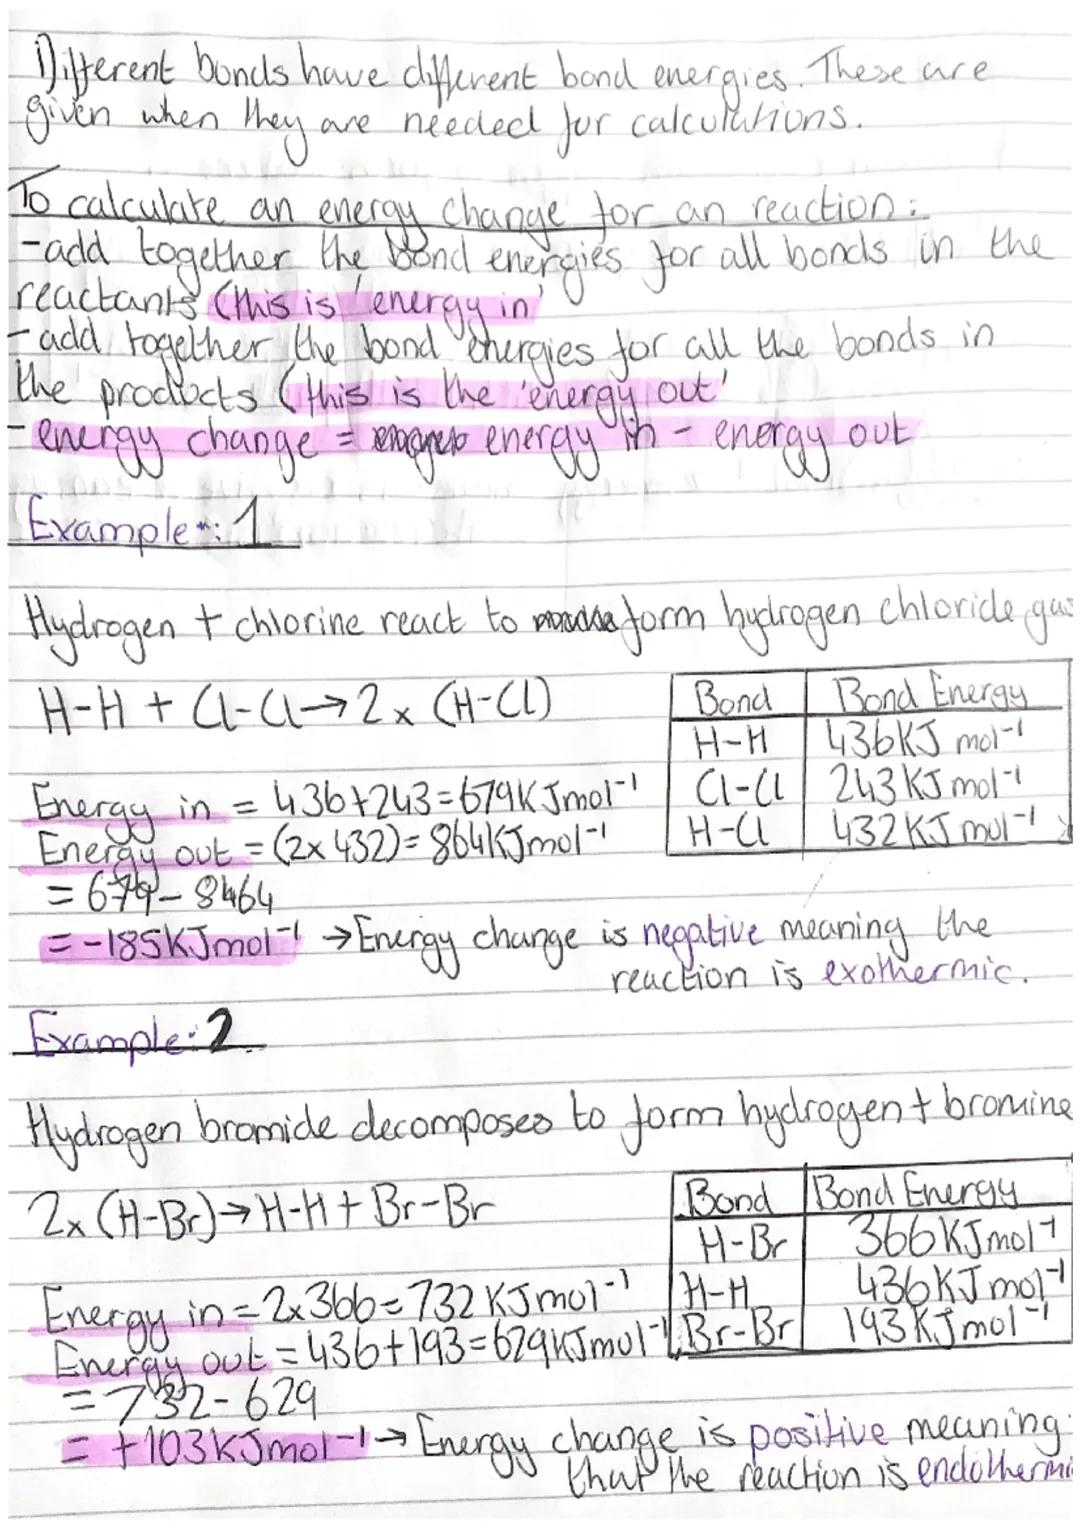 Different bonds have different bond energies. These are
given when they are needed for calculations.
To calculate an energy change for an reaction:
-add together the bond energies for all bonds in the
reactants (this is 'energy in'
-add together the bond energies for all the bonds in
the products (this is the 'energy out'
-energy change = energy in - energy out
Example: 1
Hydrogen + chlorine react to form hydrogen chloride gas
H-H + Cl-Cl→2x (H-Cl)
Bond Bond Energy
H-H 436KJ mol-1
Cl-Cl 243KJ mol-1
H-Cl 432KJ mol-1
Energy in = 436+243=679KJmol-1
Energy out = (2x432)= 864KJmol-1
= 679-8464
= -185KJmol-1 →Energy change is negative meaning the
reaction is exothermic.
Example: 2
Hydrogen bromide decomposes to form hydrogen + bromine
2x (H-Br)→H-H + Br-Br
Bond Bond Energy
H-Br 366KJmol-1
H-H 436KJmol-1
Br-Br 193KJmol-1
Energy in = 2x366=732KJmol-1
Energy out = 436+193=629KJmol-1
= 732-629
= +103KJmol-1→ Energy change is positive meaning
that the reaction is endothermi